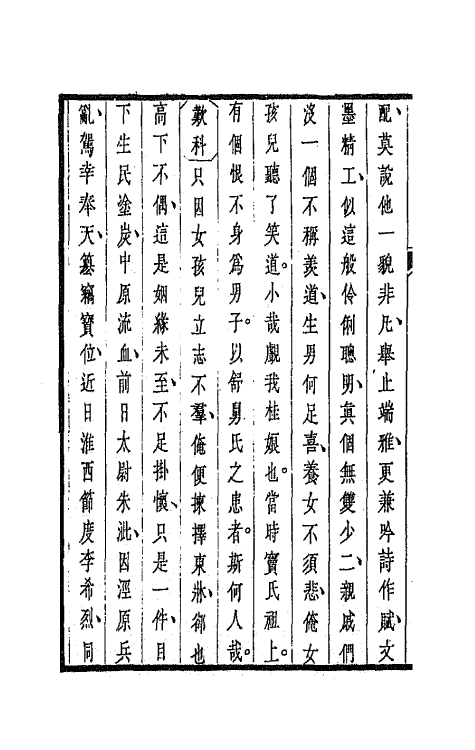 配、莫說他一貌非凡、舉止端雅、更兼吟詩作賦、文
墨精工、似這般伶俐聰明、眞個無雙少二、親戚們
沒一個不稱羨道、生男何足喜、養女不須悲、俺女
孩兒聽了笑道。小哉覷我桂娘也。當時竇氏祖上。
有個恨不身爲男子。以紓舅氏之患者。斯何人哉。
歎科只因女孩兒立志不羣、俺便揀擇東牀、郤也
高下不偶、這是姻緣未至、不足掛懷、只是一件、目
下生民塗炭、中原流血、前日太尉朱泚、因涇原兵
亂、駕幸奉天、纂竊寶位、近日淮西節度李希烈、同